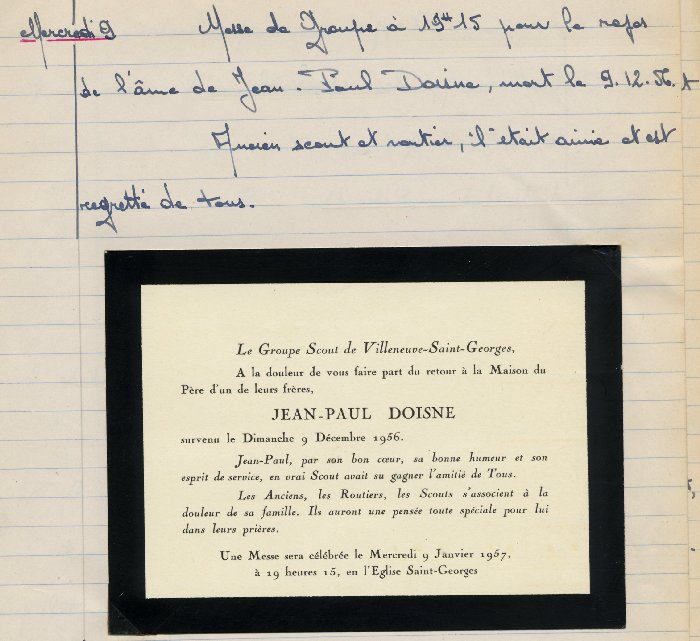 Mercredi 9 Messe de Groupe à 19H15 pour le repos
de l'âme de Jean-Paul Doisne, mort le 9.12.56.
Ancien scout et routier, il était aimé et est
regretté de tous.
Le Groupe Scout de Villeneuve-Saint-Georges,
A la douleur de vous faire part du retour à la Maison du
Père d'un de leurs frères,
JEAN-PAUL DOISNE
survenu le Dimanche 9 Décembre 1956.
Jean-Paul, par son bon cœur, sa bonne humeur et son
esprit de service, en vrai Scout avait su gagner l'amitié de Tous.
Les Anciens, les Routiers, les Scouts s'associent à la
douleur de sa famille. Ils auront une pensée toute spéciale pour lui
dans leurs prières.
Une Messe sera célébrée le Mercredi 9 Janvier 1957,
à 19 heures 15, en l'Eglise Saint-Georges